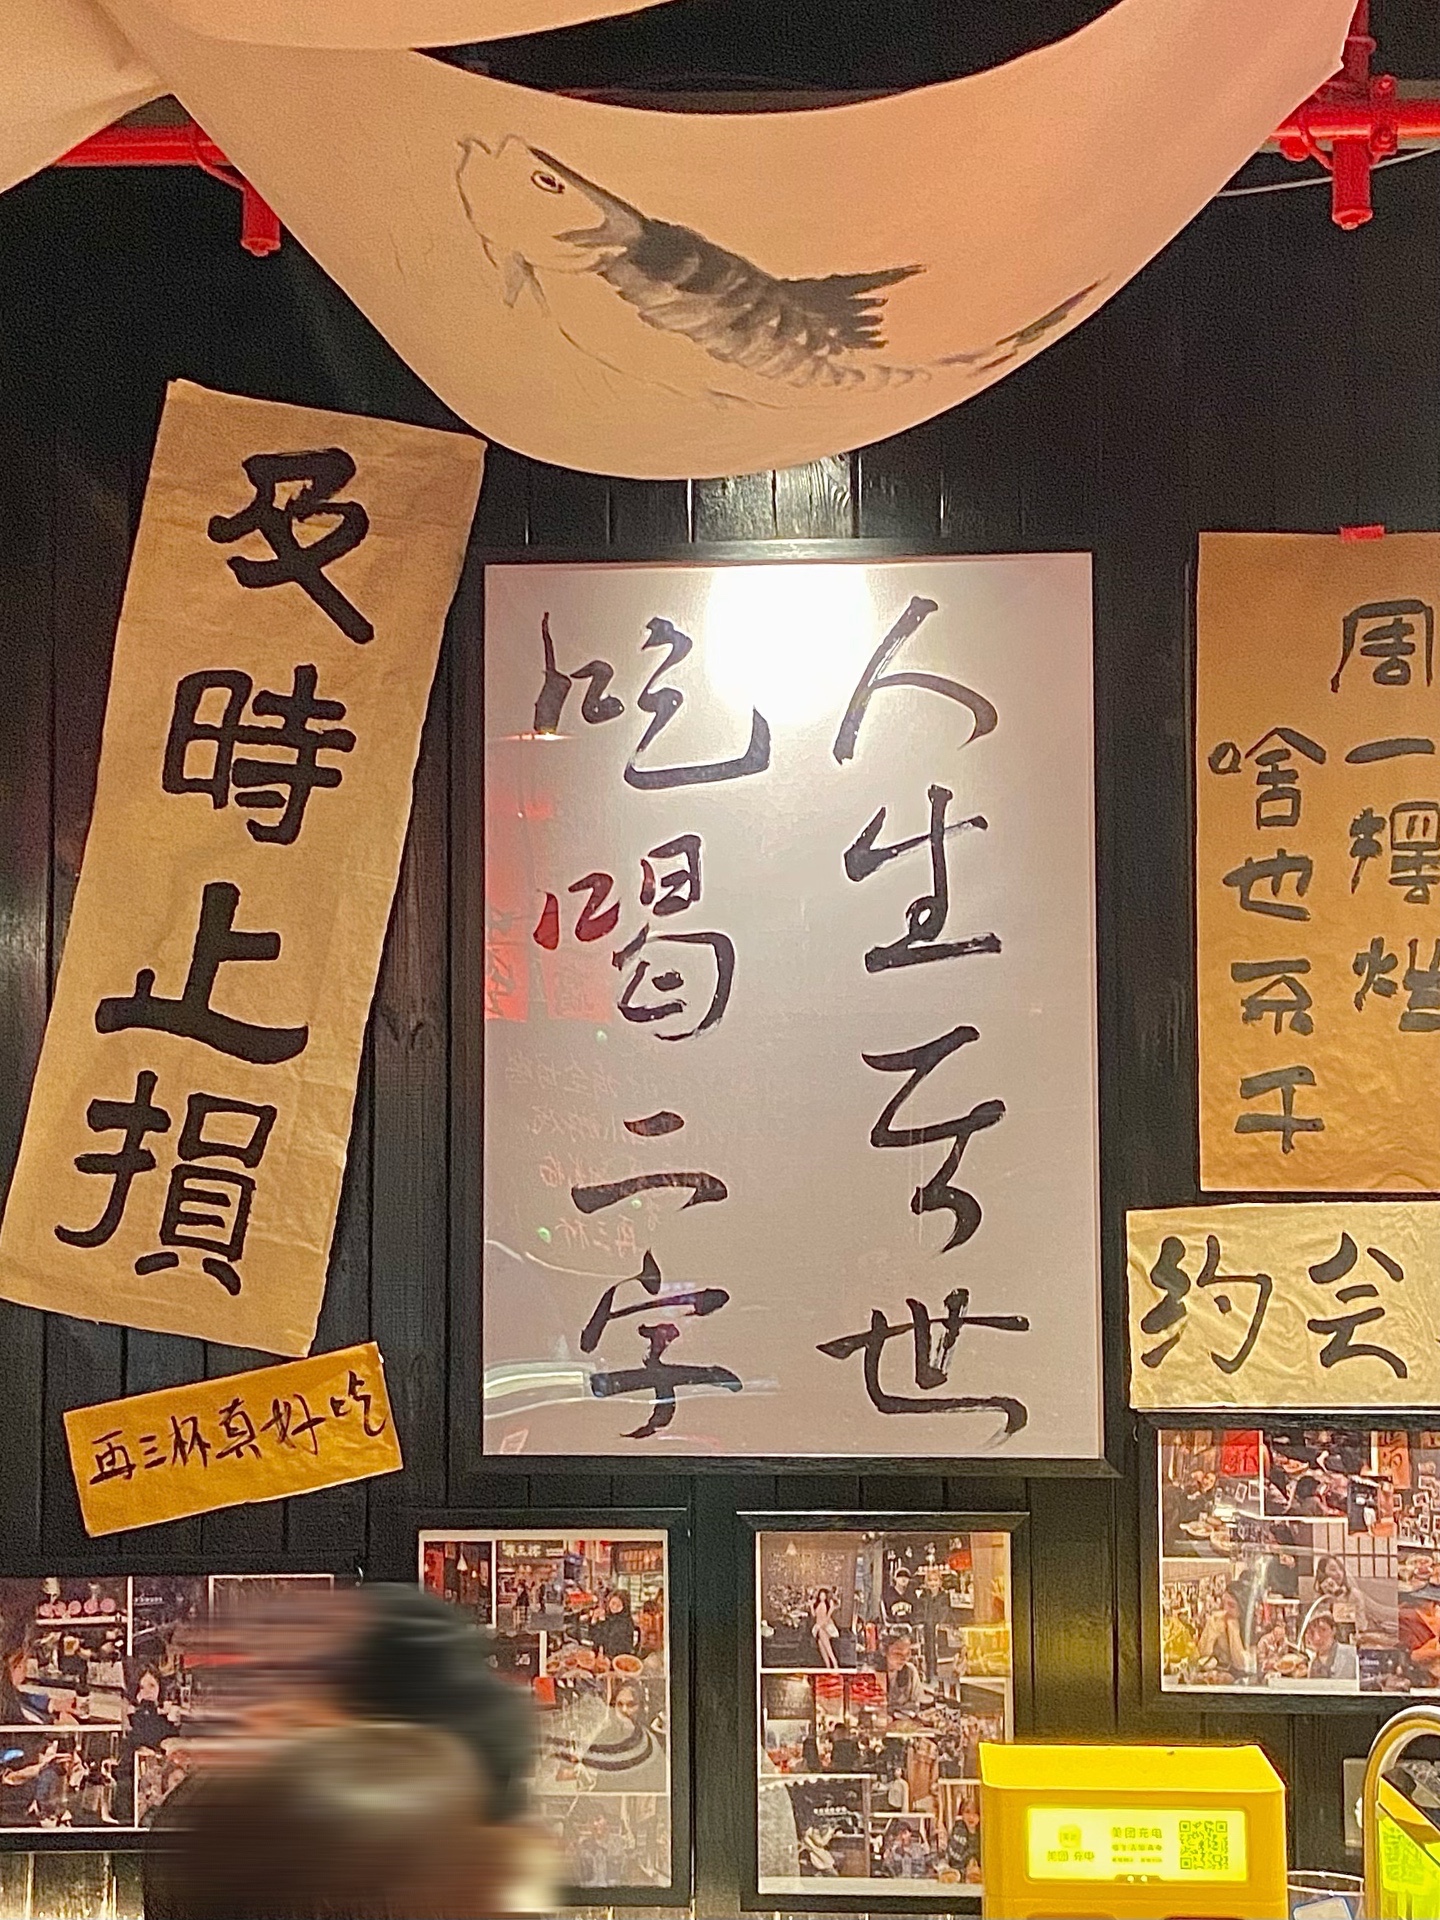 及時止損
再三杯真好吃
人生百世
吃喝二字
周一摆烂
啥也不干
约会
美团充电
美团 充电